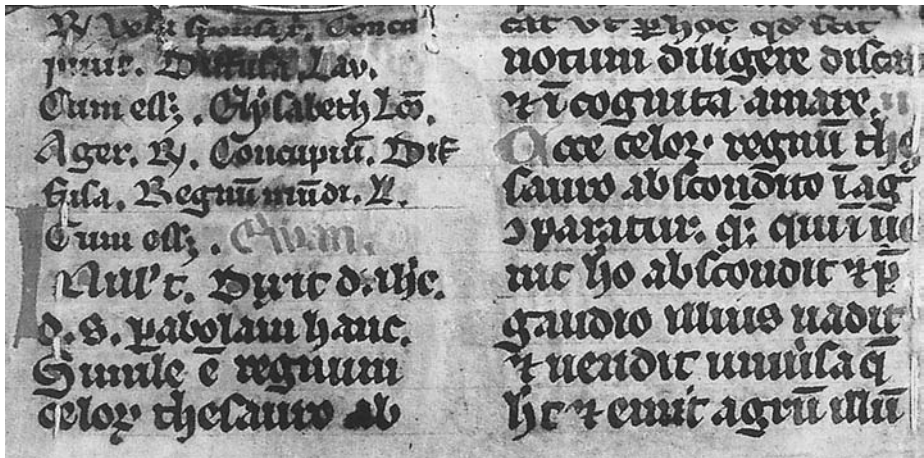 piuit. Diffusa. Lav.
Cum ess; . Elysabeth Lcō.
Ager. R. Concupiuī. Dif
fusa. Regnū mūdi. V.
Cum ess; . Ewan.
IN illʼ t. Dixit d. ihc.
d. s. pabolam hanc.
Simile ē regnum
celoꝝ thesauro ab
cat ut p hoc qđ scit
notum diligere discat
⁊ īcognita amare.
Ecce celoꝝ regnū the
sauro abscondito ī ag
ꝯparatur. q; qui īue
nit ho abscondit ⁊ p̄
gaudio illius uadit
⁊ uendit uniu͛sa q̄
ht ⁊ emit agrū illū